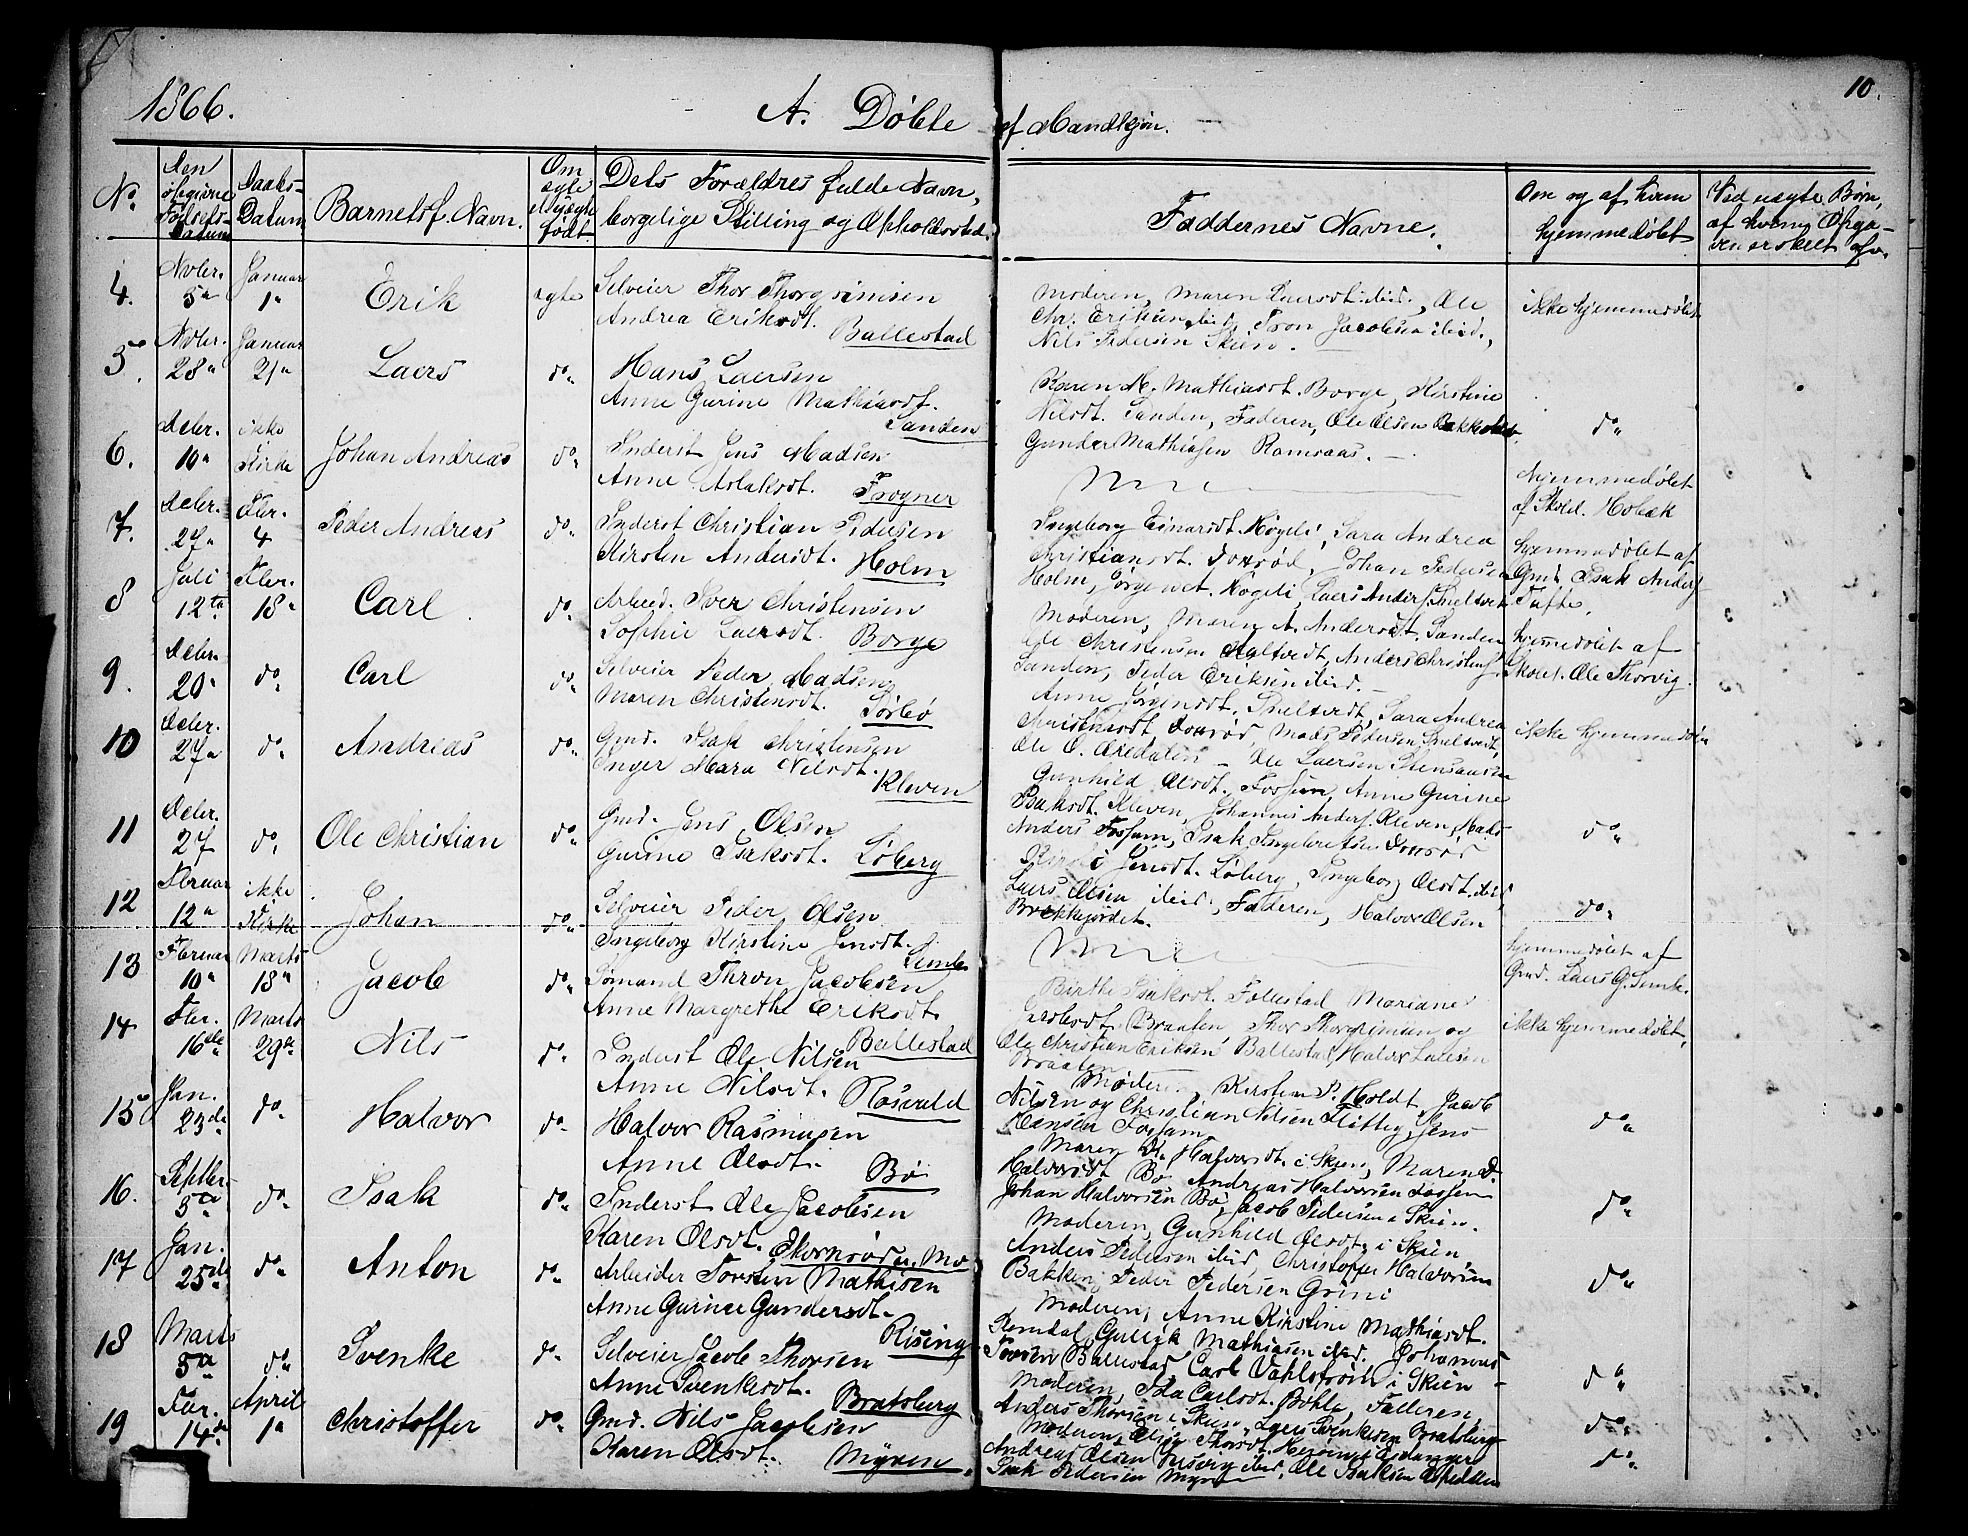 1866.
A. Døbte af Mandkjøn.
10.
No.
Den opgivne Fødsels-Datum
Daabs-Datum
Barnets f. Navn.
Om ægte el. uægte født.
Dets Forældres fulde Navn,
borgelige Stilling og Opholdssted.
Faddernes Navne.
Om og af hvem
hjemmedøbt
Ved uægte Børn,
4.
Nvbr. 5te
Januar 1te
Erik
ægte
Selveier Thor Thorgrimsen
Andrea Eriksdt. Ballestad
Moderen, Maren Laersdt. ibid., Ole
Chr. Eriksen ibid, Tron Jacobsen ibid.,
Nils Pedersen Skien.
ikke hjemmedøbt
5.
Nvbr. 28"
Januar 21"
Laers
do.
Hans Laersen
Anne Gurine Mathiasdt. Sanden
Karen M. Mathiasdt. Borge, Kirstine
Nilsdt. Sanden, Faderen, Ole Olsen Bakkholdt.
Gunder Mathiasen Ramsaas.
do.
6.
Debr. 10"
ikke Kirke
Johan Andreas
do.
Inderst Jens Madsen
Anne Aslaksdt. Frogner
Hjemmedøbt
af Skold. Hobæk
7.
Debr. 27"
Fbr. 4
Peder Andreas
do.
Inderst Christian Pedersen
Kirsten Andersdt. Holm
Ingeborg Einarsdt. Høgeli, Sara Andrea
Christiansdt. Doxrød, Johan Pedersen
Holm, Høgeli, Laers Anders. Sneltvet
hjemmedøbt af
Gmd. Isak Anders
Tufte.
8
Juli 12te
Fbr. 18"
Carl
do.
Arbeid. Iver Christensen
Sophie Laersdt. Borge
Moderen, Maren A. Andersdt. Sanden
Ole Christensen, Anders Christens.
Sanden, Peder Eriksen ibid.
hjemmedøbt af
Skolel. Ole Thorvig.
9.
Debr. 20"
do.
Carl
do.
Selveier Peder Madsen
Maren Christensdt. Sørbø
Anne Jørgensdt. Sneltvedt, Sara Andrea
Christensdt. Doxrød, Mads Pedersen Sneltvedt,
Ole O. Øxedalen - Ole Laersen Stensaasen
ikke hjemmedøbt
10
Debr. 27"
do.
Andreas
do.
Gmd. Isak Christensen
Inger Mara Nilsdt. Kleven
Gunhild Olsdt. Fossum, Anne Gurine
Isaksdt. Kleven, Johannis Anders. Kleven, Mads
Anders Fossum, Isak Ingebretsen Doxrød
do.
11
Debr. 27
do.
Ole Christian
do.
Gmd. Jens Olsen
Gurine Isaksdt. Løberg
Jensdt. Løberg, Ingeborg Olsdt. ibid,
Laers Olsen ibid, Faderen, Halvor Olsen
Brekkejordet.
do.
12
Februar 12"
ikke Kirke
Johan
do.
Selveier Peder Olsen
Ingeborg Kirstine Jensdt. Semb
hjemmedøbt af
Gmd. Laers G. Semb.
13
Februar 10"
Marts 18"
Jacob
do.
Sømand Thron Jacobsen
Anne Margrethe Eriksdt. Ballestad
Birthe Isaksdt. Follestad Mariane
Jacobsdt. Braaten, Thor Thorgrimsen og
Ole Christian Eriksen Ballestad, Halvor Laersen
Braaten
ikke hjemmedøbt,
14
Fbr. 16de
Marts 29de
Nils
do.
Inderst Ole Nilsen
Anne Nilsdt. Rosvald
Moderen, Kirsten P. Holdt, Jacob
Nilsen og Christian Nilsen Flitteg, Jens
Hansen Fossum
do.
15
Jan. 23de
do.
Halvor
do.
Halvor Rasmusen
Anne Olsdt. Bø
Maren K. Halvorsdt. i Skien, Maren D.
Halvorsdt Bø, Andreas Halvorsen Fossum
Johan Halvorsen Bø, Jacob Pedersen i Skien.
do.
16.
Septbr. 5te
do.
Isak
do.
Inderst Ole Jacobsen
Karen Olsdt.
Moderen, Gunhild Olsdt. i Skien
Anders Pedersen ibid, Christoffer Halvorsen
Bakken, Peder Pedersen Grini
do.
17
Jan. 25de
do.
Anton
do.
Arbeider Torsten Mathisen
Anne Gurine Gundersdt. Rising
Moderen, Anne Kirstine Mathiasdt.
Romdal, Gullik Mathiasen ibid. Johannes
Torsen Ballestad, Carl Vahlstrøm i Skien
do.
18
Marts 5te
do.
Svenke
do.
Selveier Jacob Thorsen
Anne Svenkesdt. Bratsberg
Moderen, Ida Carlsdt. Bøhle, Faderen,
Anders Thorsen i Skien, Laers Svenkesen Bratsberg
do.
19
Fbr. 14de
April 1"
Christoffer
do.
Gmd. Nils Jacobsen
Karen Olsdt. Myren.
Moderen, Thorsdt.
Andreas Olsen ibid, Ole Isaksen
Isak Pedersen Myren
do.